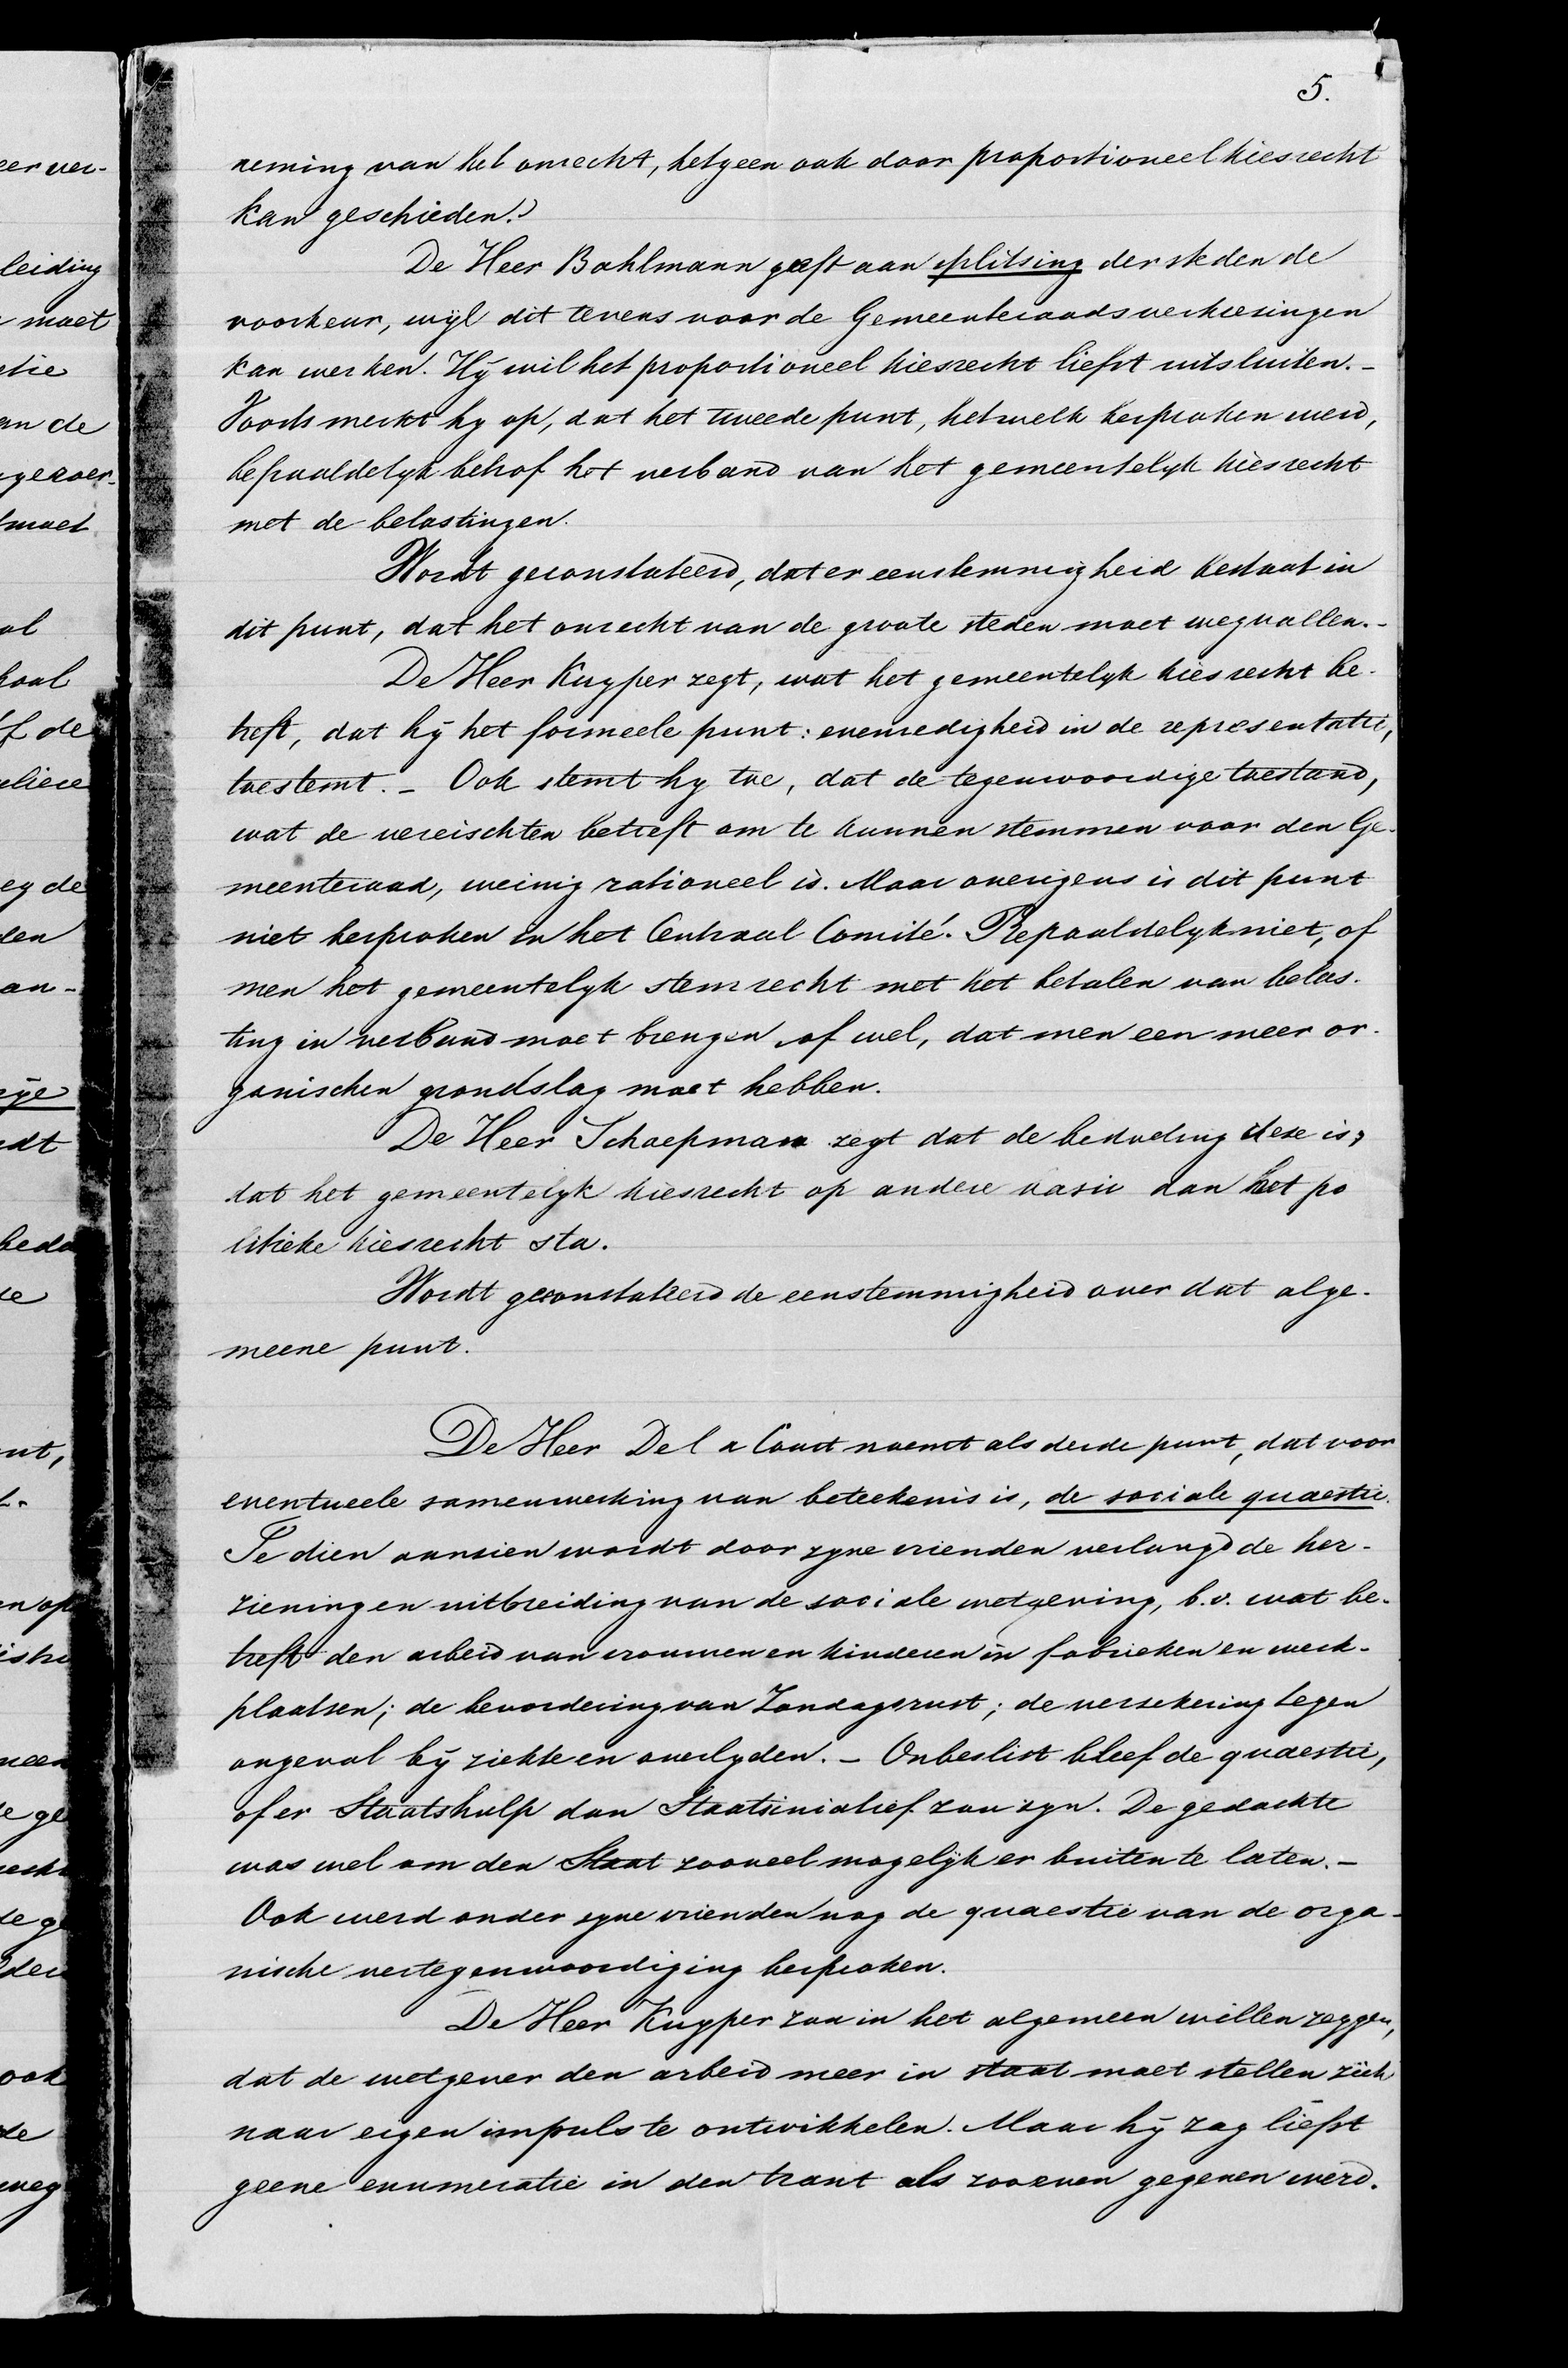 5.
neming van het onrecht, hetgeen ook door proportioneel kiesrecht
kan geschieden.)
De Heer Bahlmann geeft aan splitsing der steden de
voorkeur, wijl dit tevens voor de Gemeenteraadsverkiesingen
kan werken. Hij wil het proportioneel kiesrecht liefst uitsluiten. -
Voorts merkt hy op, dat het tweede punt, hetwelk besproken werd,
bepaaldelyk betrof het verband van het gemeentelyk kiesrecht
met de belastingen.
Wordt geconstateerd, dat er eenstemmigheid bestaat in
dit punt, dat het onrecht van de groote steden moet wegvallen. -
De Heer Kuyper zegt, wat het gemeentelyk kiesrecht be-
treft, dat hij het formeele punt: evenredigheid in de representatie,
toestemt. - Ook stemt hy toe, dat de tegenwoordige toestand,
wat de vereischten betreft om te kunnen stemmen voor den Ge-
meenteraad, weinig rationeel is. Maar overigens is dit punt
niet besproken in het Centraal Comité. Bepaaldelyk niet, of
men het gemeentelyk stemrecht met het betalen van belas-
ting in verband moet brengen of wel, dat men een meer or-
ganischen grondslag moet hebben.
De Heer Schaepman zegt dat de bedoeling deze is,
dat het gemeentelyk kiesrecht op andere basis dan het po
litieke kiesrecht sta.
Wordt geconstateerd de eenstemmigheid over dat alge-
meene punt.
De Heer De la Court noemt als derde punt, dat voor
eventueele samenwerking van beteekenis is, de sociale quaestie.
Te dien aansien wordt door zyne vrienden verlangd de her-
ziening en uitbreiding van de sociale wetgeving, b.v. wat be-
treft den arbeid van vrouwen en kinderen in fabrieken en werk-
plaatsen; de bevordering van Zondagsrust; de versekering tegen
ongeval bij ziekte en overlyden. - Onbeslist bleef de quaestie,
of er Staatshulp dan Staatsiniatief zou zyn. De gedachte
was wel om den Staat zooveel mogelijk er buiten te laten. -
Ook werd onder zyne vrienden nog de quaestie van de orga-
nische vertegenwoordiging besproken.
De Heer Kuyper zou in het algemeen willen zeggen,
dat de wetgever den arbeid meer in staat moet stellen zich
naar eigen impuls te ontwikkelen. Maar hij zag liefst
geene enumeratie in den trant als zooeven gegeven werd.